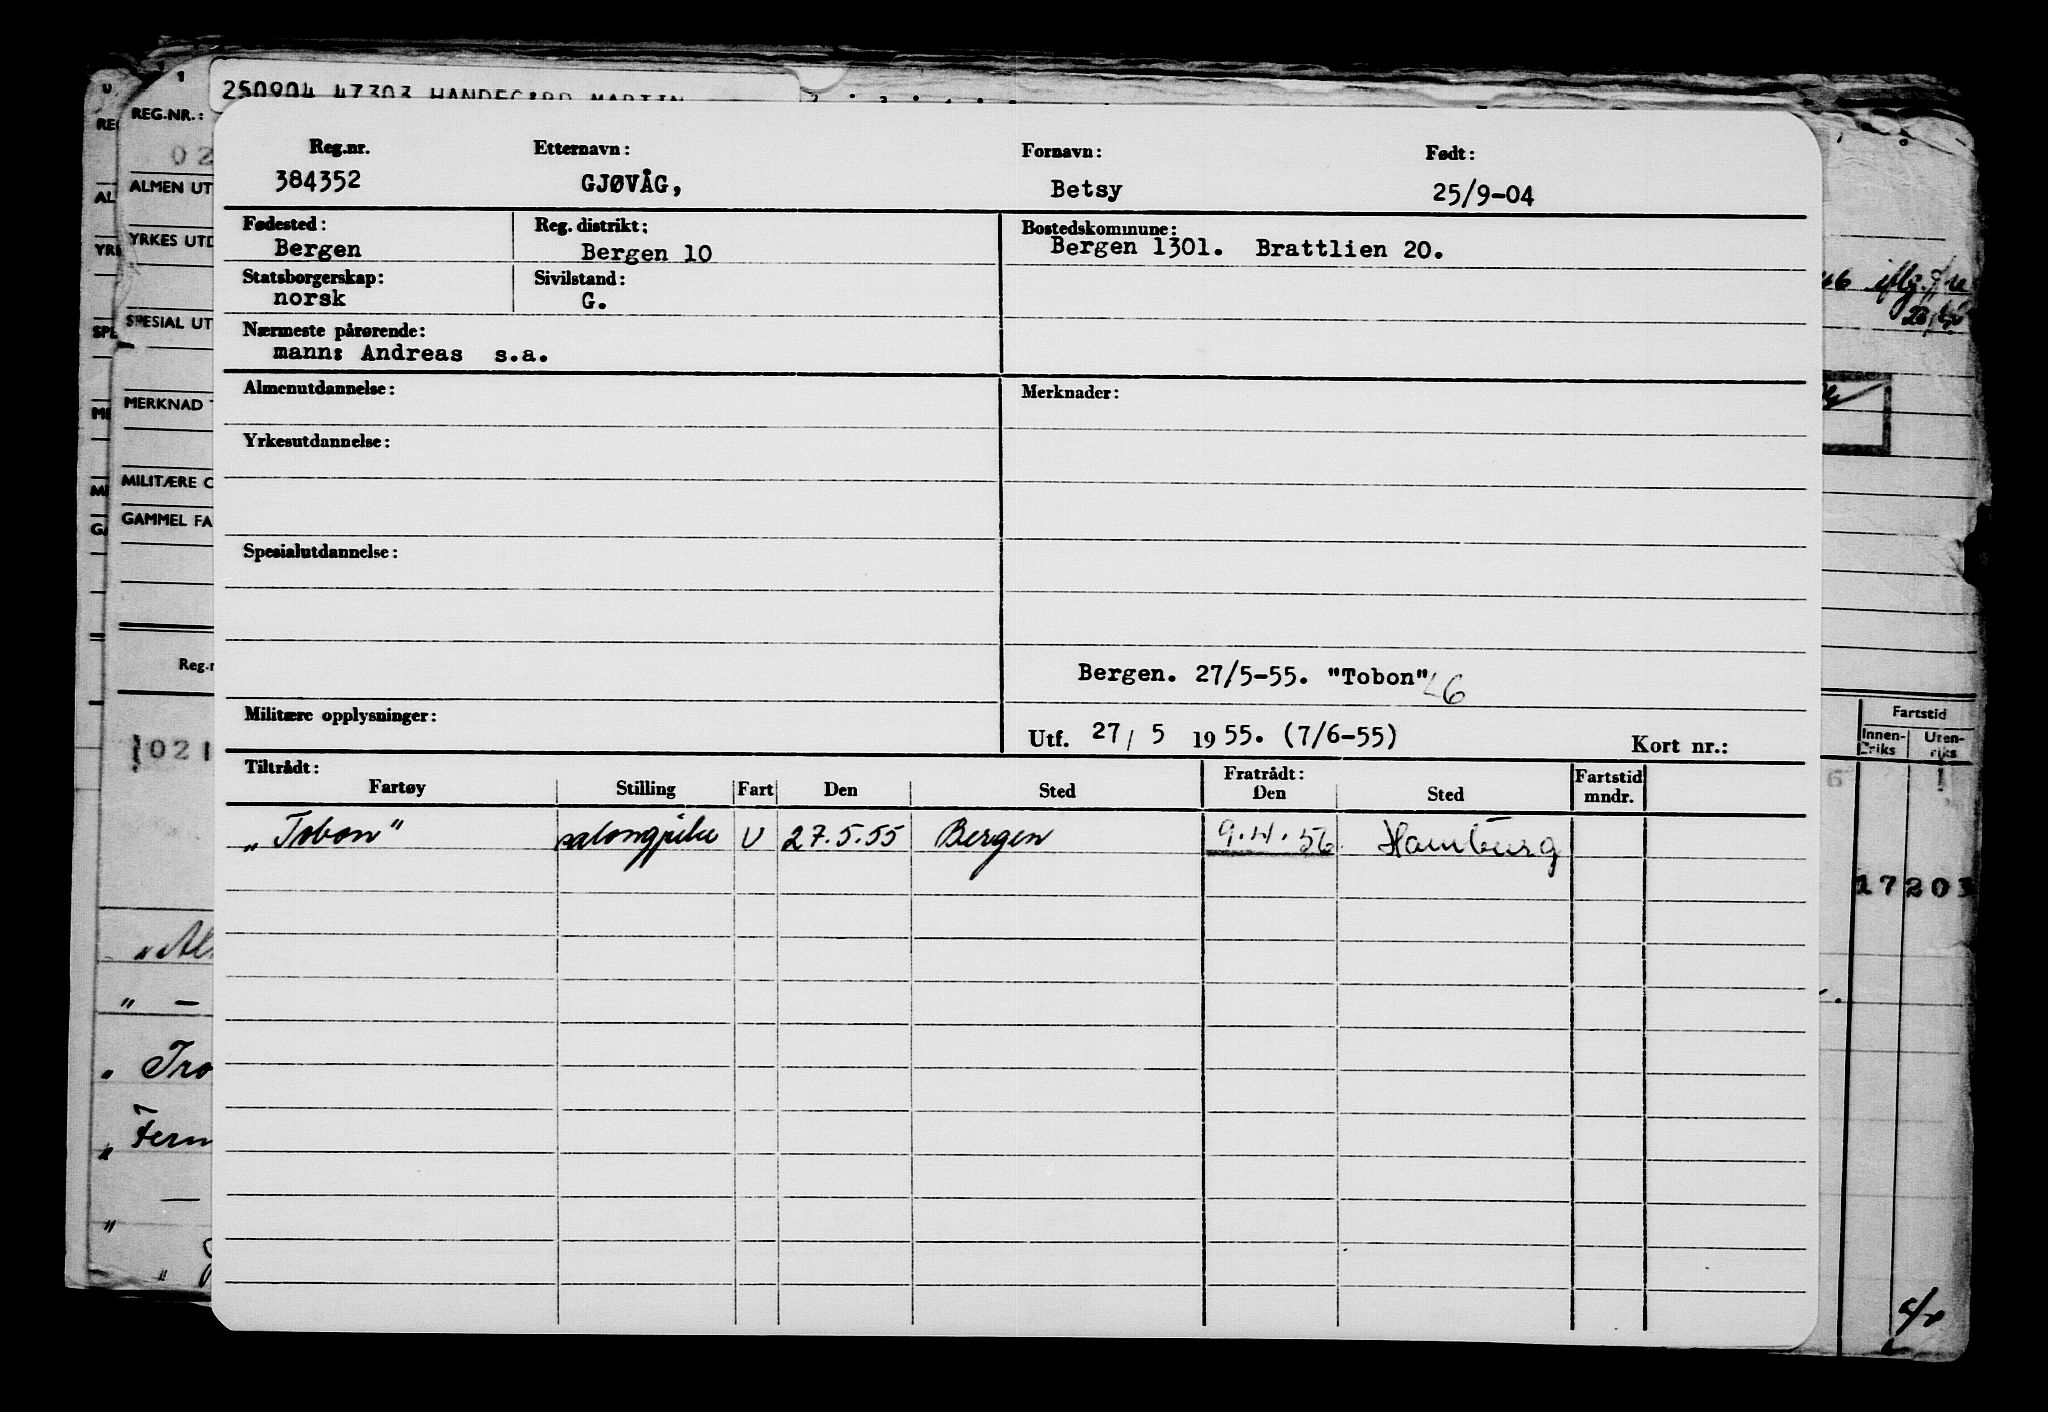 250904 47303 HANDEGÅRD MARTIN
REG.NR.:
02
ALMEN UT
YRKES UTD
SPESIAL UT
MERKNAD
MILITÆRE O
GAMMEL FA
Reg.nr. Etternavn: Fornavn: Født:
384352 GJØVÅG, Betsy 25/9-04
Fødested: Reg. distrikt: Bostedskommune:
Bergen Bergen 10 Bergen 1301. Brattlien 20.
Statsborgerskap: Sivilstand:
norsk G.
Nærmeste pårørende:
mann: Andreas s.a.
Almenutdannelse: Merknader:
Yrkesutdannelse:
Spesialutdannelse:
Bergen. 27/5-55. "Tobon"
Militære opplysninger:
Utf. 27/ 5 1955. (7/6-55) Kort nr.:
Tiltrådt: Fratrådt: Fartstid
Fartøy Stilling Fart Den Sted Den Sted mndr.
„Tobon" salongpike U 27.5.55 Bergen 9.4.56 Hamburg
Fartstid
Innen-
riks
Uten-
riks
021
17203
„Al
" —
„ Tro
„ Fern